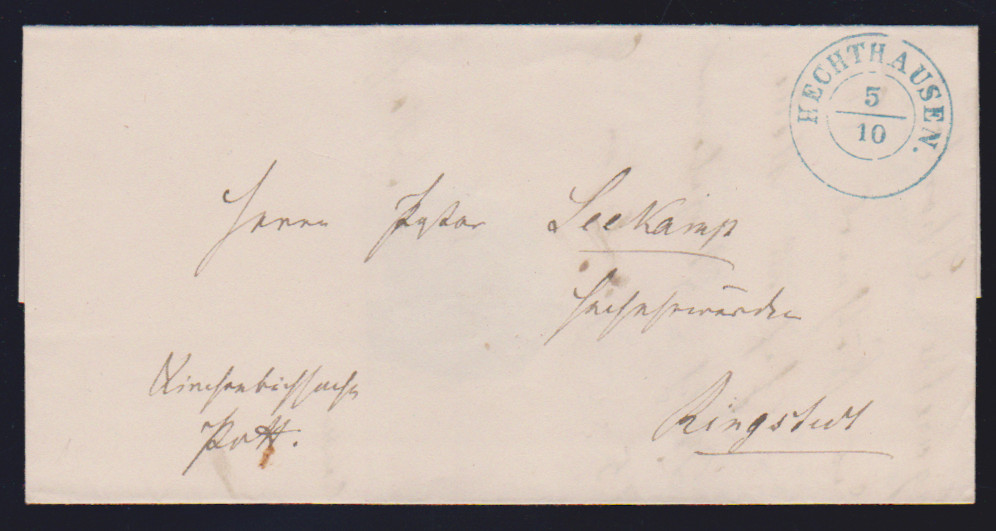 HECHTHAUSEN.
5
10
Herrn Pastor Seekamp
Hochehrwürden
Kirchenbuchsache
Pott.
Ringstedt